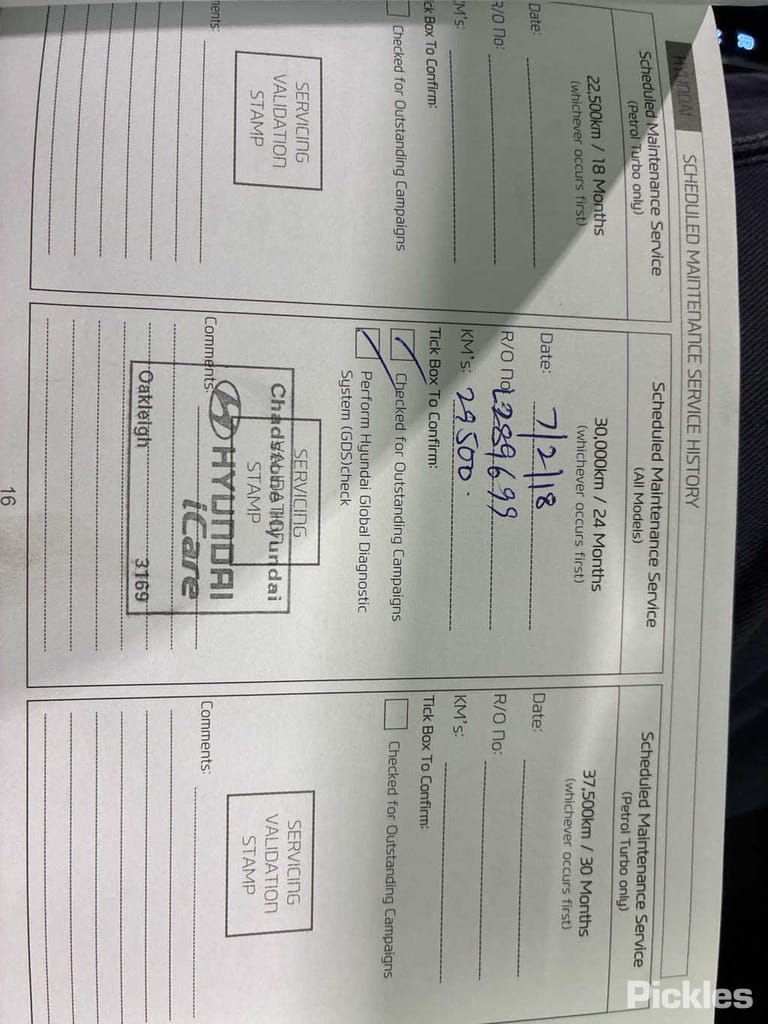 HYUNDAI
SCHEDULED MAINTENANCE SERVICE HISTORY
Scheduled Maintenance Service
(Petrol Turbo only)
22,500km / 18 Months
(whichever occurs first)
Date:
R/O no:
KM's:
Tick Box To Confirm:
Checked for Outstanding Campaigns
SERVICING
VALIDATION
STAMP
ments:
Scheduled Maintenance Service
(All Models)
30,000km / 24 Months
(whichever occurs first)
Date: 7/2/18
R/O no: L289699
KM's: 29500.
Tick Box To Confirm:
Checked for Outstanding Campaigns
Perform Hyundai Global Diagnostic
System (GDS)check
SERVICING
VALIDATION
STAMP
Chadstone Hyundai
HYUNDAI
iCare
Oakleigh 3169
Comments:
Scheduled Maintenance Service
(Petrol Turbo only)
37,500km / 30 Months
(whichever occurs first)
Date:
R/O no:
KM's:
Tick Box To Confirm:
Checked for Outstanding Campaigns
SERVICING
VALIDATION
STAMP
Comments:
16
R
Pickles